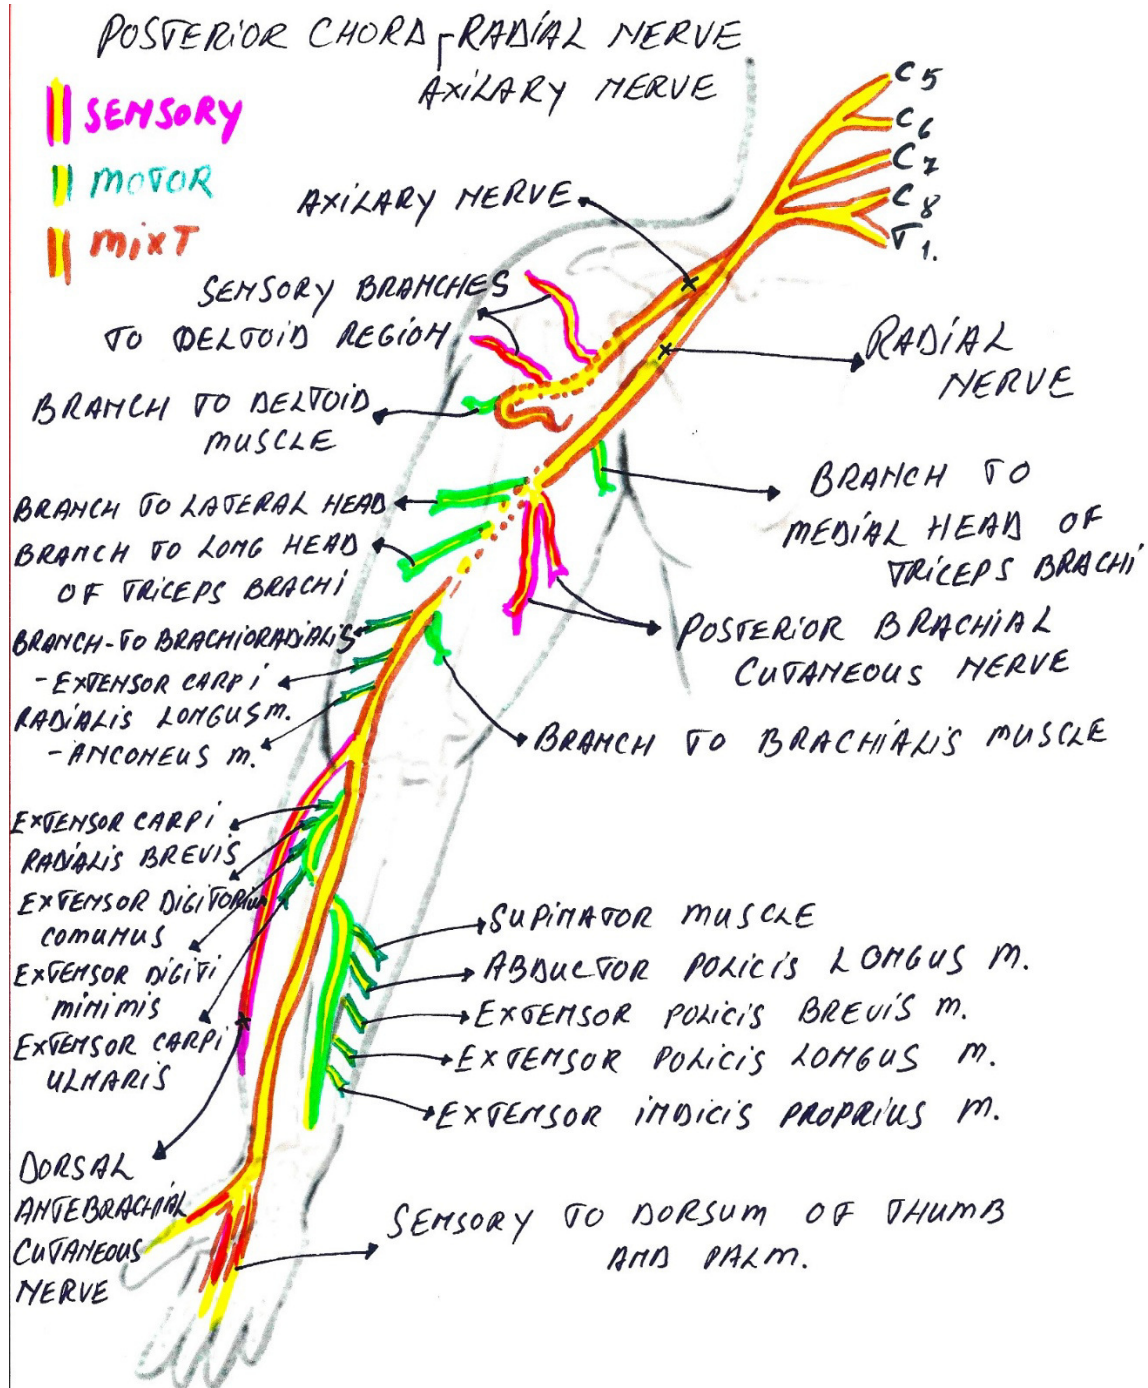 POSTERIOR CHORD - RADIAL NERVE
AXILARY NERVE
SENSORY
MOTOR
MIXT
C5
C6
C7
C8
T1.
AXILARY NERVE
SENSORY BRANCHES
TO DELTOID REGION
RADIAL
NERVE
BRANCH TO DELTOID
MUSCLE
BRANCH TO
MEDIAL HEAD OF
TRICEPS BRACHI
BRANCH TO LATERAL HEAD
BRANCH TO LONG HEAD
OF TRICEPS BRACHI
POSTERIOR BRACHIAL
CUTANEOUS NERVE
BRANCH-TO BRACHIORADIALIS
-EXTENSOR CARPI
RADIALIS LONGUS m.
-ANCONEUS m.
BRANCH TO BRACHIALIS MUSCLE
EXTENSOR CARPI
RADIALIS BREVIS
EXTENSOR DIGITORIUM
COMUNUS
EXTENSOR DIGITI
MINIMIS
EXTENSOR CARPI
ULNARIS
SUPINATOR MUSCLE
ABDUCTOR POLICIS LONGUS M.
EXTENSOR POLICIS BREVIS M.
EXTENSOR POLICIS LONGUS M.
EXTENSOR INDICIS PROPRIUS M.
DORSAL
ANTEBRACHIAL
CUTANEOUS
NERVE
SENSORY TO DORSUM OF THUMB
AND PALM.